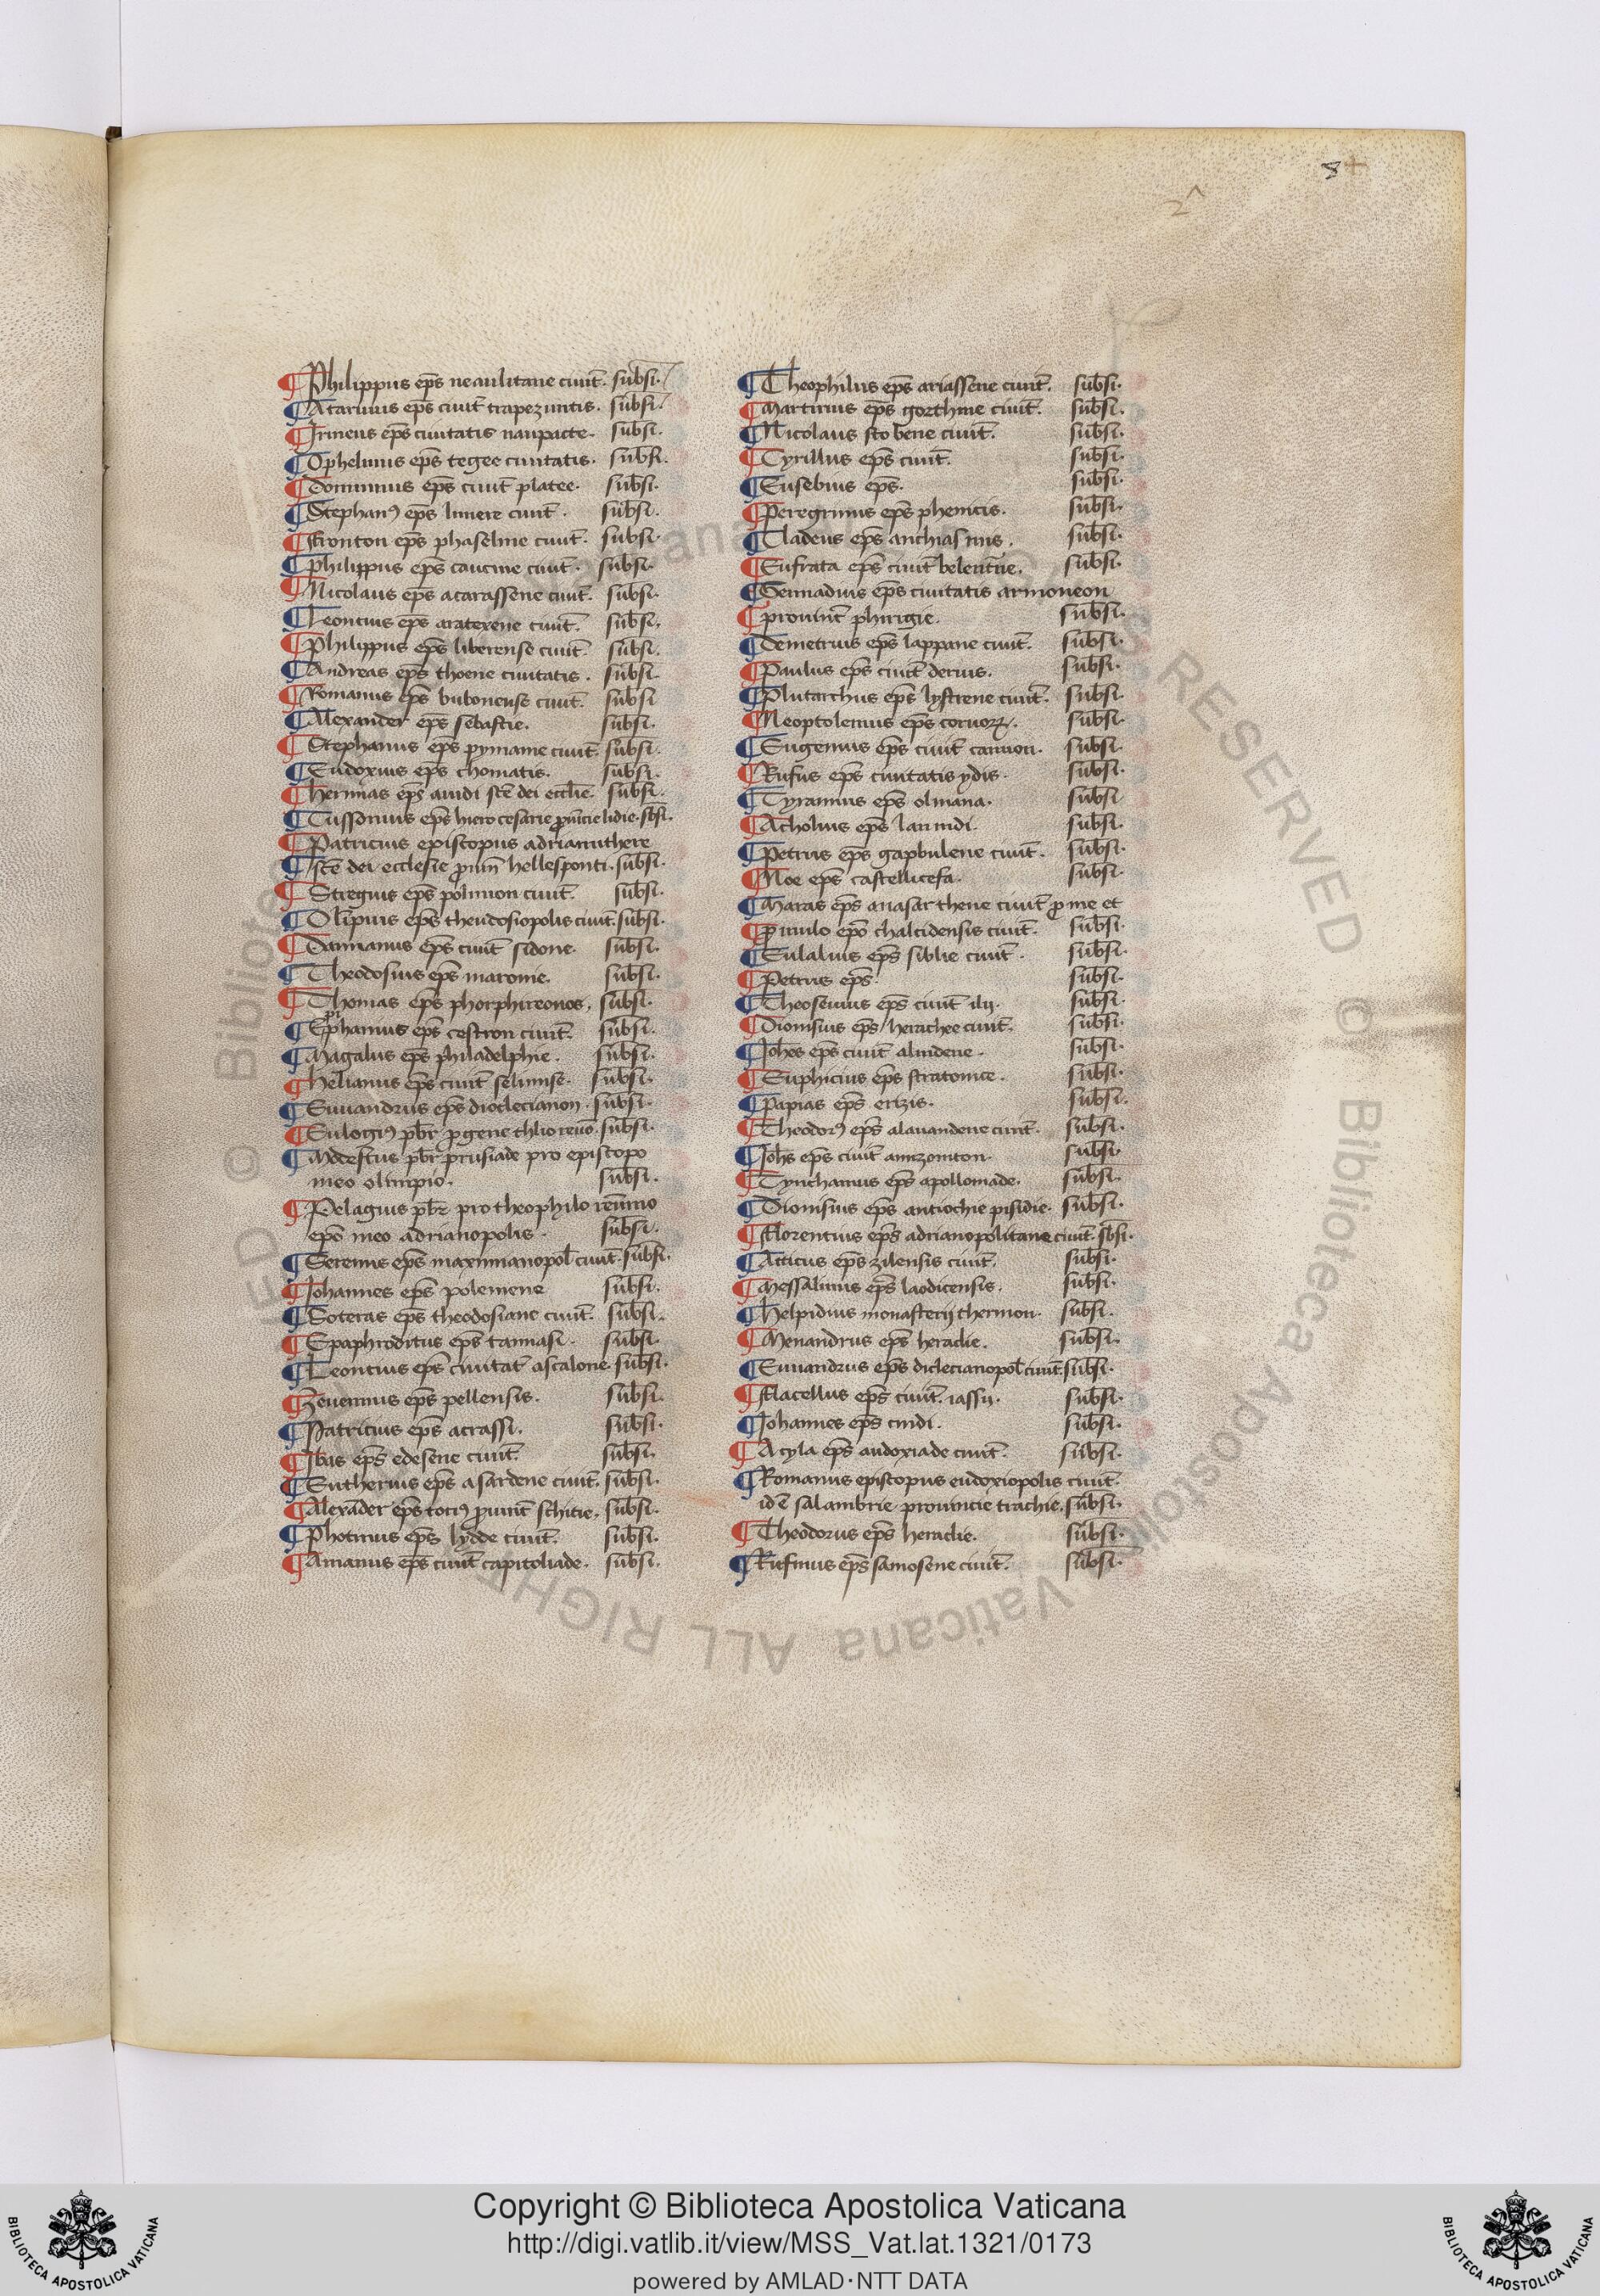 8+
2^
¶ Philippus ep̄s neaulitane ciuit̄. sub̄si.
¶ Atarinus ep̄s ciuit̄ trapezuntis. sub̄si.
¶ Irineus ep̄s ciuitatis naupacte. sub̄si.
¶ Ophelimus ep̄s tegee ciuitatis. sub̄si.
¶ Dominius ep̄s ciuit̄ platee. sub̄si.
¶ Stephanꝰ ep̄s limere ciuit̄. sub̄si.
¶ Fronton ep̄s phaseline ciuit̄. sub̄si.
¶ Philippus ep̄s caucine ciuit̄. sub̄si.
¶ Nicolaus ep̄s acarassene ciuit̄. sub̄si.
¶ Leoncius ep̄s araterene ciuit̄. sub̄si.
¶ Philippus ep̄s liberense ciuit̄. sub̄si.
¶ Andreas ep̄s thoene ciuitatis. sub̄si.
¶ Romanus ep̄s bubonense ciuit̄. sub̄si
¶ Alexander ep̄s sebastie. sub̄si.
¶ Stephanus ep̄s pymame ciuit̄. sub̄si.
¶ Eudoxius ep̄s chomatis. sub̄si.
¶ Herminas ep̄s auidi sc̄e dei eccl̄ie. sub̄si.
¶ Tussonius ep̄s hierocesarie ꝓuincie lidie. sb̄si.
¶ Patricius episcopus adrianuthere
¶ sc̄e dei ecclesie ꝓuin̄ hellesponti. sub̄si.
¶ Stregius ep̄s polimon ciuit̄. sub̄si.
¶ Olipius ep̄s theudosiopolis ciuit̄. sub̄si.
¶ Damianus ep̄s ciuit̄ sidone. sub̄si.
¶ Theodosius ep̄s marome. sub̄si.
¶ Thomas ep̄s phorphireonos. sub̄si.
¶ Epiphanius ep̄s cestron ciuit̄. sub̄si.
¶ Magalus ep̄s philadelphie. sub̄si.
¶ Helianus ep̄s ciuit̄ selinuse. sub̄si.
¶ Euuandrus ep̄s dioclecianon. sub̄si.
¶ Eulogiꝰ pb̄r ꝓ gene thlio reuō. sub̄si.
¶ Modestus pb̄r prusiade pro episcopo
meo olimpio. sub̄si.
¶ Pelagius pb̄r pro theophilo reuērmo
ep̄o meo adrianopolis. sub̄si.
¶ Serenus ep̄s maximianopol̄ ciuit̄. sub̄si.
¶ Iohannes ep̄s polemene sub̄si.
¶ Soteras ep̄s theodosiane ciuit̄. sub̄si.
¶ Epaphroditus ep̄s tamasi. sub̄si.
¶ Leontius ep̄s ciuitat̄ ascalone. sub̄si.
¶ Zeuennus ep̄s pellensis. sub̄si.
¶ Patricius ep̄s acrassi. sub̄si.
¶ Ibas ep̄s edesene ciuit̄. sub̄si.
¶ Eutherius ep̄s asardene ciuit̄. sub̄si.
¶ Alexāder ep̄s tociꝰ ꝓuint̄ schitie. sub̄si.
¶ Photinus ep̄s lydde ciuit̄. sub̄si.
¶ Amanus ep̄s ciuit̄ capitoliade. sub̄si.
¶ Theophilus ep̄s ariassene ciuit̄. sub̄si.
¶ Martirius ep̄s gorthine ciuit̄. sub̄si.
¶ Nicolaus stobene ciuit̄. sub̄si.
¶ Cyrillus ep̄s ciuit̄. sub̄si.
¶ Eusebius ep̄s. sub̄si.
¶ Peregrinus ep̄s phenicis. sub̄si.
¶ Cladeus ep̄s anchiasmus. sub̄si.
¶ Eufrata ep̄s ciuit̄ beleutine. sub̄si.
¶ Gennadius ep̄s ciuitatis armoneon
¶ prouint̄ phirigie. sub̄si.
¶ Demetrius ep̄s lappane ciuit̄. sub̄si.
¶ Paulus ep̄s ciuit̄ derius. sub̄si.
¶ Plutarchus ep̄s lystrene ciuit̄. sub̄si.
¶ Neoptolemus ep̄s coruoꝝ. sub̄si.
¶ Eugenius ep̄s ciuit̄ cannon. sub̄si.
¶ Rufus ep̄s ciuitatis ydis. sub̄si.
¶ Tyrannus ep̄s olmana. sub̄si
¶ Acholius ep̄s larundi. sub̄si.
¶ Petrus ep̄s gapbulene ciuit̄. sub̄si.
¶ Noe ep̄s castellicefa. sub̄si.
¶ Maras ep̄s anasarthene ciuit̄ ꝓ me et
¶ ꝓ irulo ep̄o chalcidensis ciuit̄. sub̄si.
¶ Eulalius ep̄s siblie ciuit̄. sub̄si.
¶ Petrus ep̄s. sub̄si.
¶ Theosenius ep̄s ciuit̄ ilij. sub̄si.
¶ Dionisius ep̄s herachee ciuit̄. sub̄si.
¶ Ioh̄es ep̄s ciuit̄ alindene. sub̄si.
¶ Euphicius ep̄s stratonice. sub̄si.
¶ Papias ep̄s erizis. sub̄si.
¶ Theodorꝰ ep̄s alauandene ciuit̄. sub̄si.
¶ Ioh̄s ep̄s ciuit̄ amizomton. sub̄si.
¶ Tynchamus ep̄s apollomade. sub̄si.
¶ Dionisius ep̄s antiochie pisidie. sub̄si.
¶ Florentius ep̄s adrianopolitane ciuit̄. sb̄si.
¶ Atticus ep̄s zilensis ciuit̄. sub̄si.
¶ Messalinus ep̄s laodicensis. sub̄si.
¶ Helpidius monasterij thermon. sub̄si.
¶ Menandrus ep̄s heraclie. sub̄si.
¶ Euuandrus ep̄s diclecianopol̄ ciuit̄. sub̄si.
¶ Flacellus ep̄s ciuit̄. iassij. sub̄si.
¶ Iohannes ep̄s cnidi. sub̄si.
¶ Acyla ep̄s audoxiade ciuit̄. sub̄si.
¶ Romanus episcopus eudoxiopolis ciuit̄
id ē salambrie prouincie trachie. sub̄si.
¶ Theodorus ep̄s heraclie. sub̄si.
¶ Rufinus ep̄s samosene ciuit̄. sub̄si.
Copyright © Biblioteca Apostolica Vaticana
http://digi.vatlib.it/view/MSS_Vat.lat.1321/0173
powered by AMLAD·NTT DATA
BIBLIOTECA APOSTOLICA VATICANA
BIBLIOTECA APOSTOLICA VATICANA
© Biblioteca Apostolica Vaticana ALL RIGHTS RESERVED